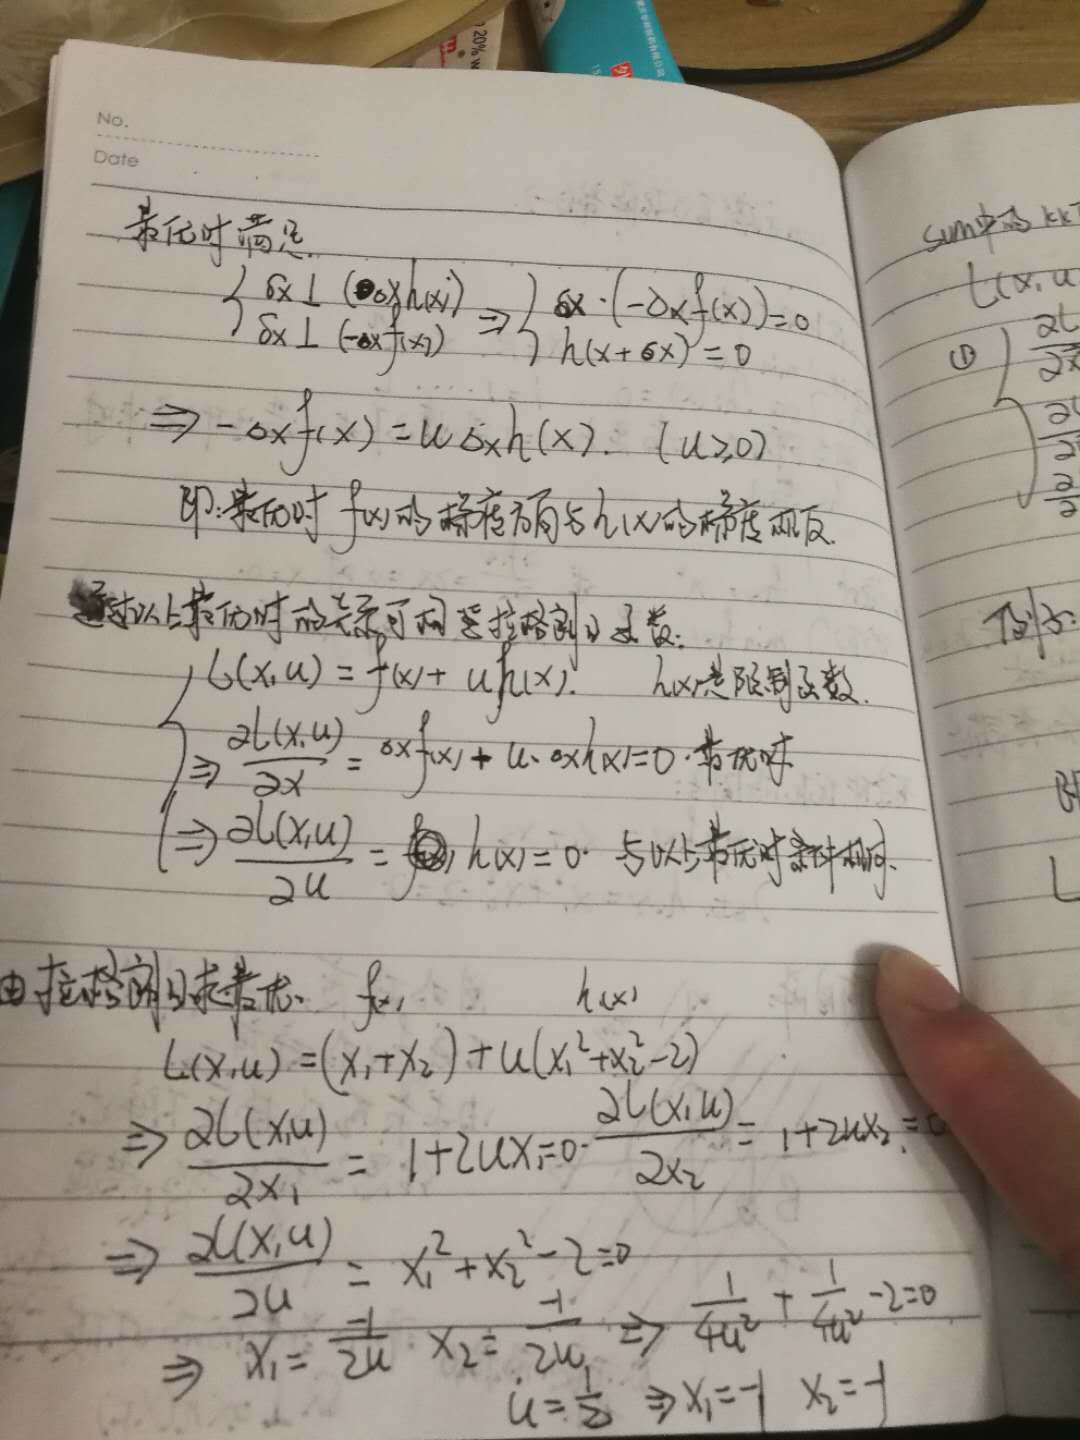 No.
Date
最优时满足
δx⊥ (△xh(x))
δx⊥ (-△xf(x))
⇒ { δx·(-△xf(x))=0
h(x+δx)=0
⇒ -△xf(x)=u△xh(x). (u≥0)
即:最优时 f(x)的梯度方向与h(x)的梯度相反.
通过以上最优时的关系可构造拉格朗日函数.
L(x,u)=f(x)+uh(x). h(x)是限制函数.
⇒ ∂L(x,u)/∂x = △xf(x)+u·△xh(x)=0·最优时
⇒ ∂L(x,u)/∂u = h(x)=0· 与以上最优时条件相同.
由拉格朗日求最优. f(x) h(x)
L(x,u)=(x₁+x₂)+u(x₁²+x₂²-2)
⇒ ∂L(x,u)/∂x₁ = 1+2ux₁=0· ∂L(x,u)/∂x₂ = 1+2ux₂=0
⇒ ∂L(x,u)/∂u = x₁²+x₂²-2=0
⇒ x₁=-1/2u x₂=-1/2u ⇒ 1/4u²+1/4u²-2=0
u=1/2 ⇒x₁=-1 x₂=-1
sum中的KKT
L(x,u
①
例子:
即
L
20%